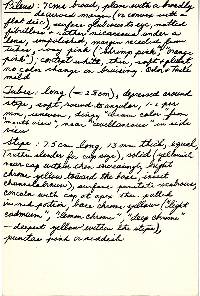 Pileus: 7 cm broad, plane with a broadly
decurved margin (or convex with a
flat disc), surface glabrous to eye, matted
fibrillose + rather micaceous under a
lens, unpolished, margin
tubes, ivory pink ("shrimp pink" "orange
pink"); context white, thin, soft + pliant
no color change on bruising. Odor + taste
mild
Tubes: long (= 2.8 cm), depressed around
stipe, soft, round to angular, 1-2 per
mm, uneven, dingy "cream color" from
"mouth view", near "cartilaginous" in side
view
Stipe: 7.5 cm long, 13 mm thick, equal,
(rather slender for cap size), solid (yellowish
near cap within then increasingly bright
chrome yellow toward the base, insect
channels brown), surface punctate scabrous,
concolor with cap at apex then
in mid portion, base chrome yellow ("light
cadmium", "lemon chrome", "deep chrome"
— deepest yellow within the stipe),
punctae pink or reddish